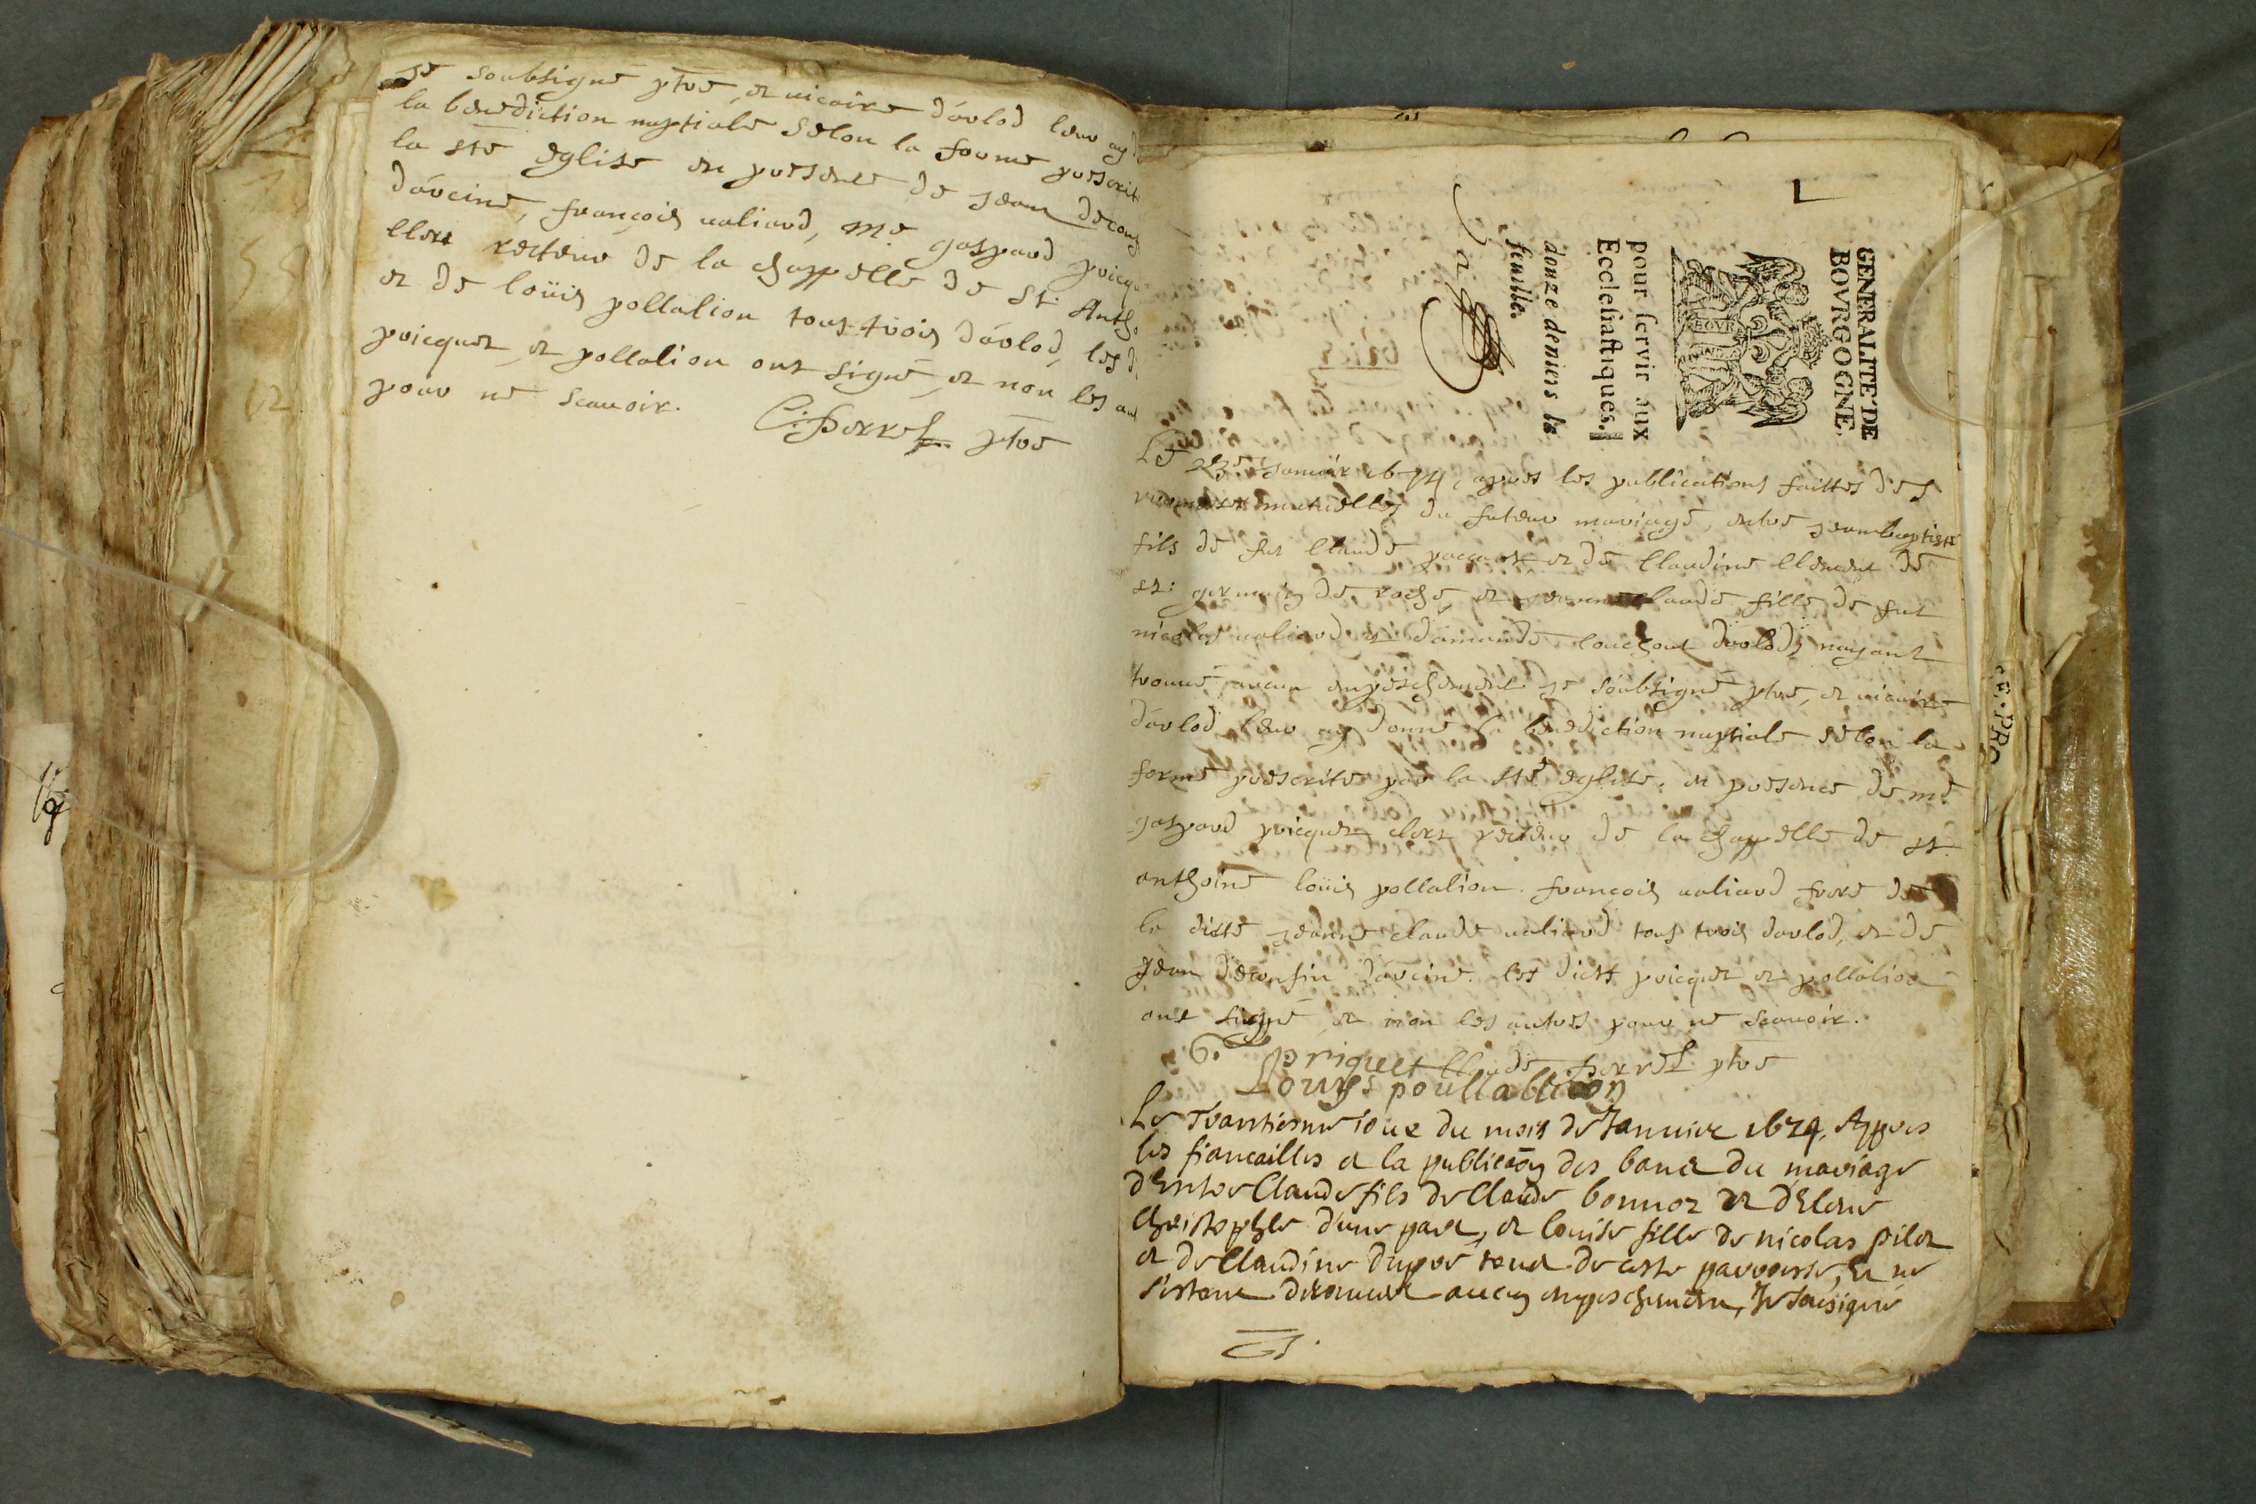 je soubsigné ptre, et vicaire d'arlod leur ay
la benediction nuptiale selon la forme prescrit
la ste eglise en presence de jean
d'arcine, françois valiard, me gaspard pricqu
clerc recteur de la chappelle de st. Antho
et de loüis pollalion tous trois d'arlod, les d
pricquet, et pollalion ont signé, et non les au
pour ne scavoir.
C. Perrel ptre
L
GENERALITE DE
BOVRGOGNE,
pour servir aux
Ecclesiastiques.
douze deniers la
feuille.
Le 23e janvier 1674, apres les publications faittes des
mutuelles du futeur mariage, entre jean baptiste
fils de feu Claude et de Claudine Clement de
st: germain de et jeanne claude fille de feu
nicolas valiard et d'arlod, nayant
trouvé aucun enpeschement je soubsigné ptre, et vicaire
d'arlod leur ay donné la benediction nuptiale selon la
forme prescrite par la ste eglise, en presence de me
gaspard pricquet clerc recteur de la chappelle de st.
anthoine loüis pollalion. françois valiard frere de
la ditte jeanne claude valiard tous trois darlod, et de
jean d'arcine. les dicts pricquet et pollalion
ont signé, et non les autres pour ne scavoir.
G. Priquet Claude Perrel ptre
Louys poullallion
Le Trantiesme iour du mois de Janvier 1674, Appres
les fiancailles et la publication des bans du mariage
d'Entre Claude fils de Claude bonnoz et
Christophle d'une part, et louise fille de nicolas pilot
et de Claudine dupré tous de ceste parroisse, Et ne
s'estant decouvert aucun enpeschement, Je sousigné